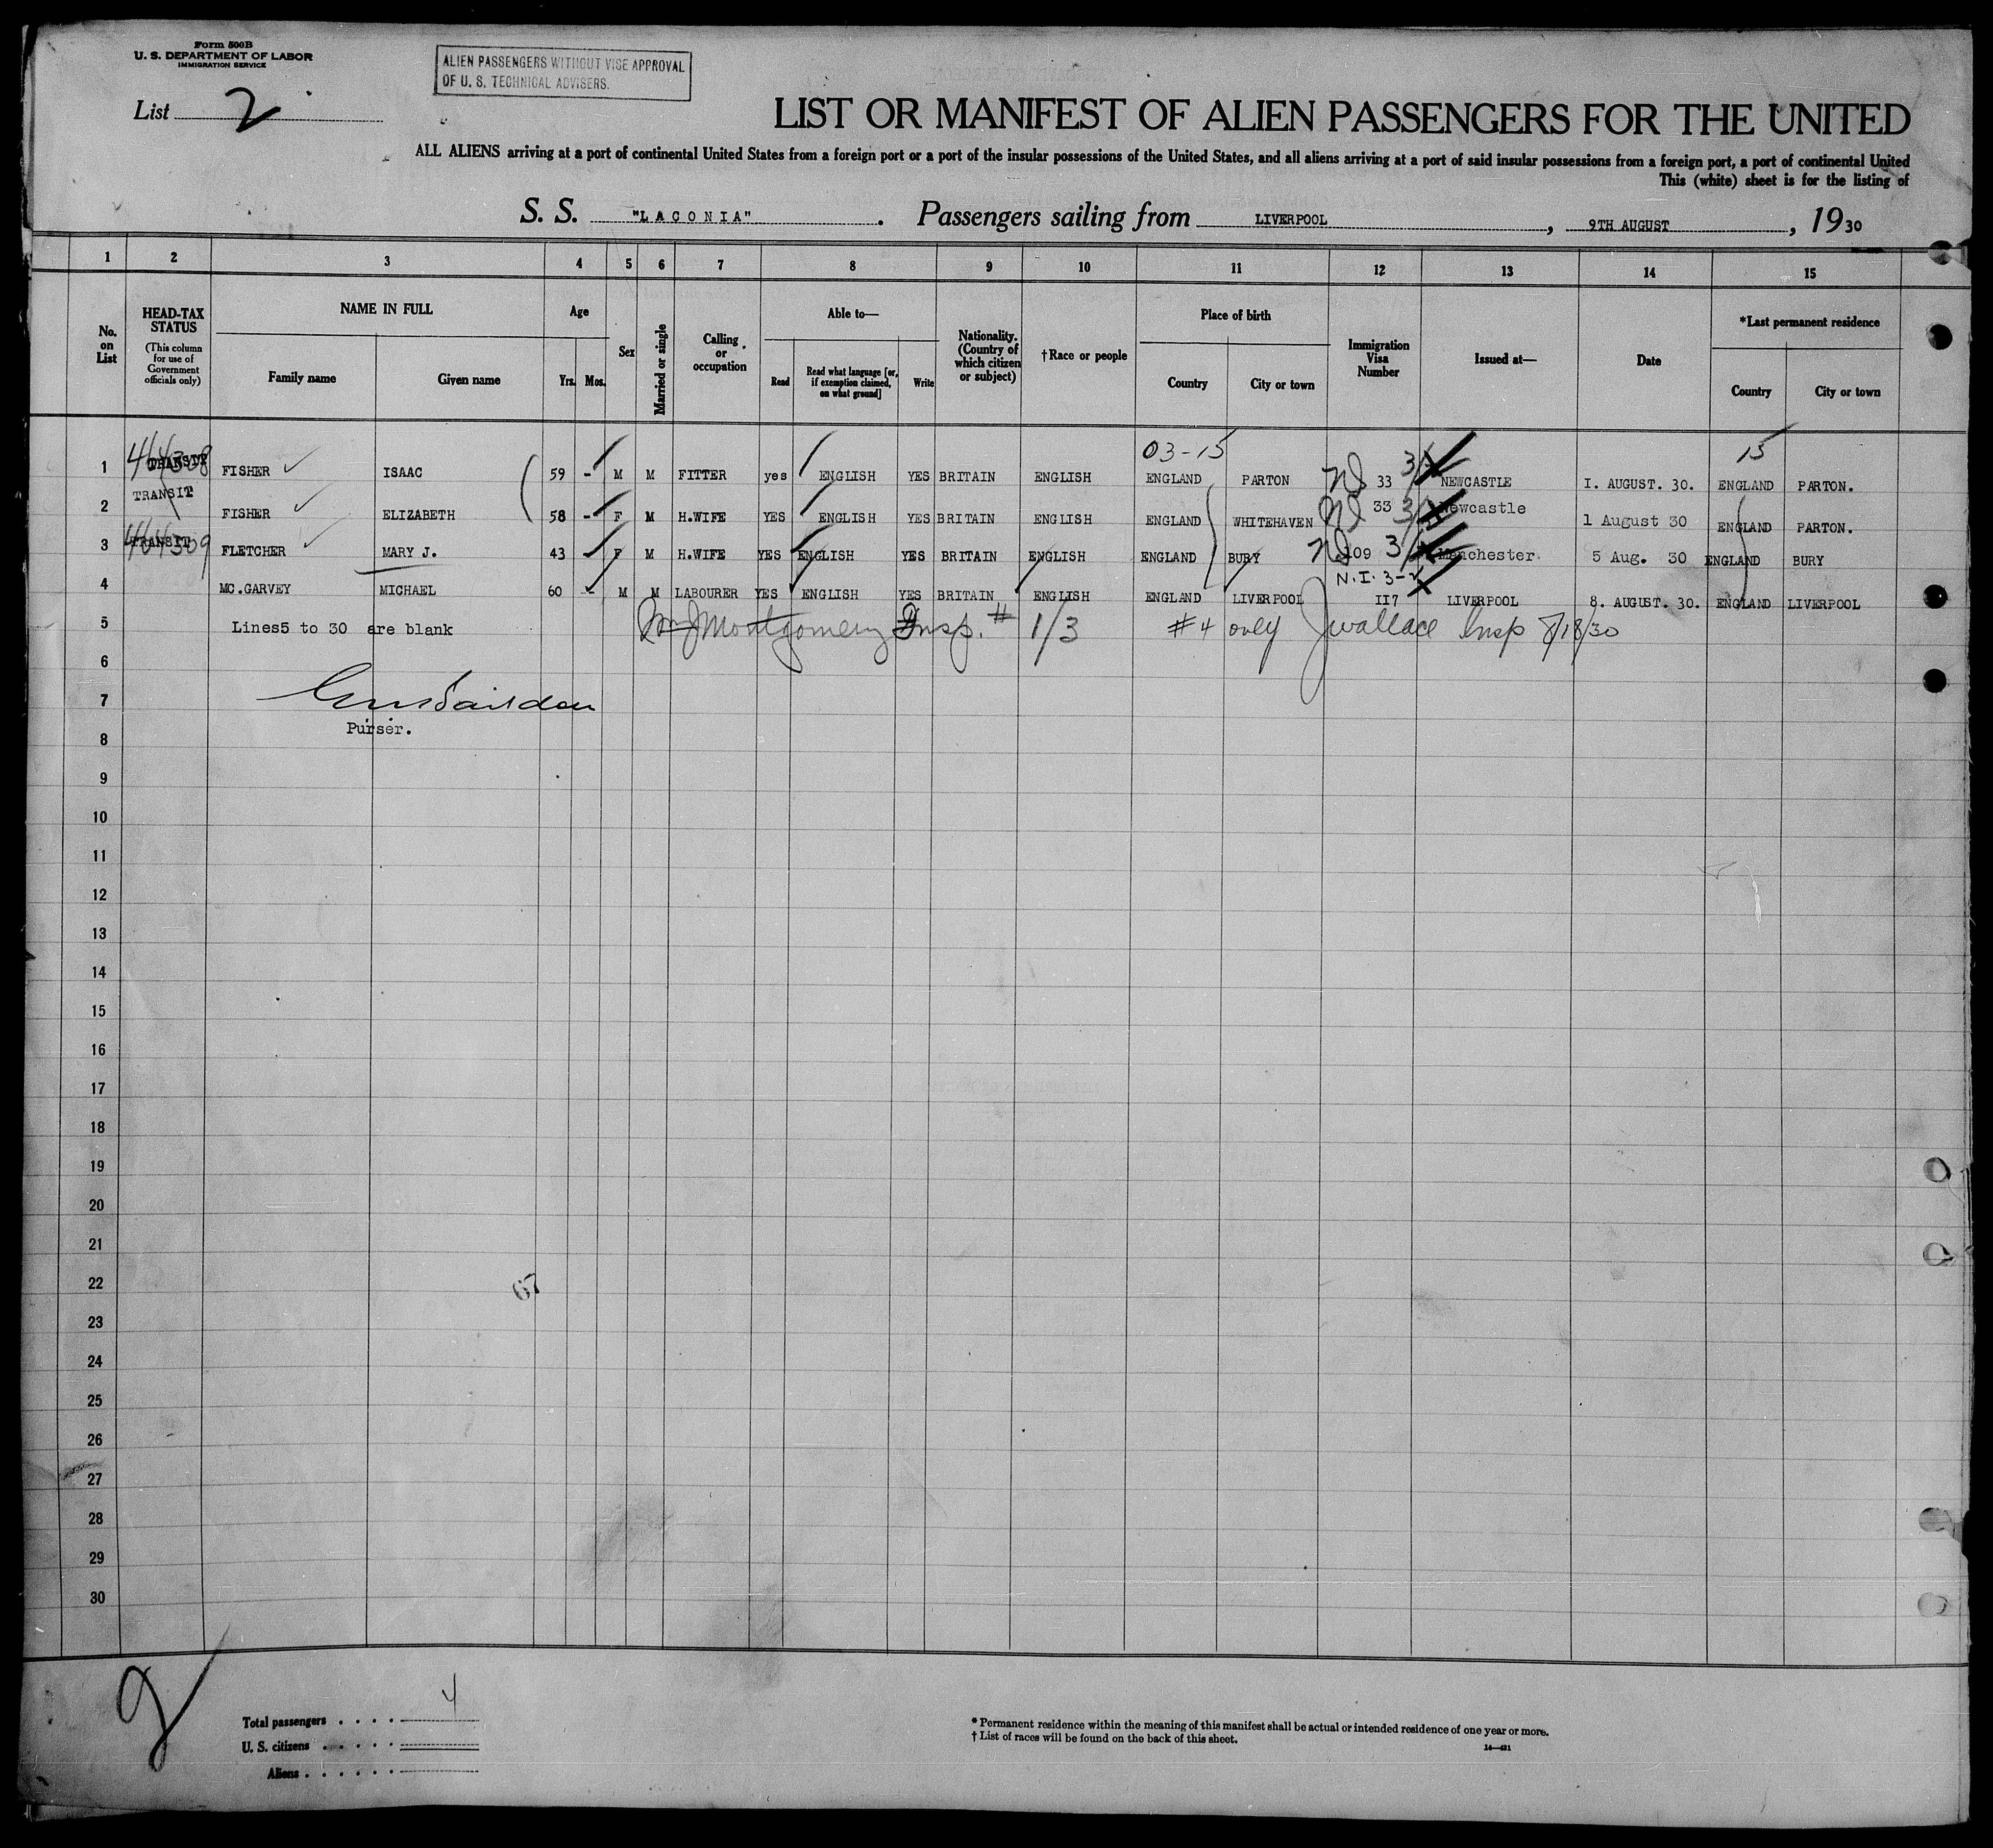 Form 500B
U. S. DEPARTMENT OF LABOR
IMMIGRATION SERVICE
ALIEN PASSENGERS WITHOUT VISE APPROVAL
OF U. S. TECHNICAL ADVISERS.
List 2
LIST OR MANIFEST OF ALIEN PASSENGERS FOR THE UNITED
ALL ALIENS arriving at a port of continental United States from a foreign port or a port of the insular possessions of the United States, and all aliens arriving at a port of said insular possessions from a foreign port, a port of continental United
This (white) sheet is for the listing of
S. S. "LACONIA". Passengers sailing from LIVERPOOL, 9TH AUGUST, 1930
1 2 3 4 5 6 7 8 9 10 11 12 13 14 15
No. on List
HEAD-TAX STATUS
(This column for use of Government officials only)
NAME IN FULL
Family name Given name
Age
Yrs. Mos.
Sex
Married or single
Calling or occupation
Able to—
Read Read what language [or, if exemption claimed, on what ground] Write
Nationality. (Country of which citizen or subject)
†Race or people
Place of birth
Country City or town
Immigration Visa Number
Issued at—
Date
*Last permanent residence
Country City or town
03-15 15
464308
1 TRANSIT FISHER ISAAC 59 - M M FITTER yes ENGLISH YES BRITAIN ENGLISH ENGLAND PARTON 33 NEWCASTLE I. AUGUST. 30. ENGLAND PARTON.
2 TRANSIT FISHER ELIZABETH 58 - F M H.WIFE YES ENGLISH YES BRITAIN ENGLISH ENGLAND WHITEHAVEN 33 Newcastle 1 August 30 ENGLAND PARTON.
464309
3 TRANSIT FLETCHER MARY J. 43 - F M H.WIFE YES ENGLISH YES BRITAIN ENGLISH ENGLAND BURY 109 Manchester 5 Aug. 30 ENGLAND BURY
N.I. 3-2
4 MC.GARVEY MICHAEL 60 - M M LABOURER YES ENGLISH YES BRITAIN ENGLISH ENGLAND LIVERPOOL II7 LIVERPOOL 8. AUGUST. 30. ENGLAND LIVERPOOL
5 Lines5 to 30 are blank Montgomery Insp. # 1/3 #4 only J Wallace Insp 8/18/30
6
7
Purser.
8
9
10
11
12
13
14
15
16
17
18
19
20
21
22
67
23
24
25
26
27
28
29
30
Total passengers . . . . 4
U. S. citizens . . . . .
Aliens . . . . . .
* Permanent residence within the meaning of this manifest shall be actual or intended residence of one year or more.
† List of races will be found on the back of this sheet.
14—421